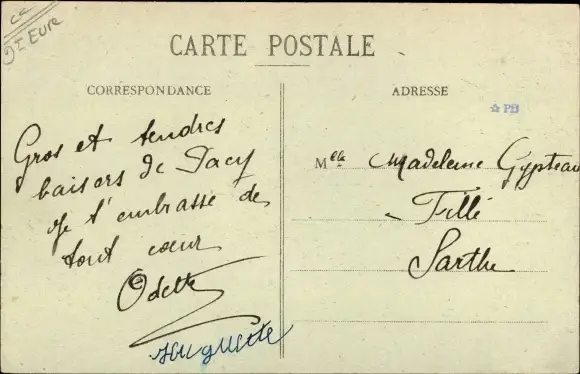 CC
DI Eure
CARTE POSTALE
CORRESPONDANCE
ADRESSE
PB
Gros et tendres
baisers de Pacy
Je t'embrasse de
tout cœur
Odette
Huguette
Mlle Madeleine Gypteau
Fillé
Sarthe